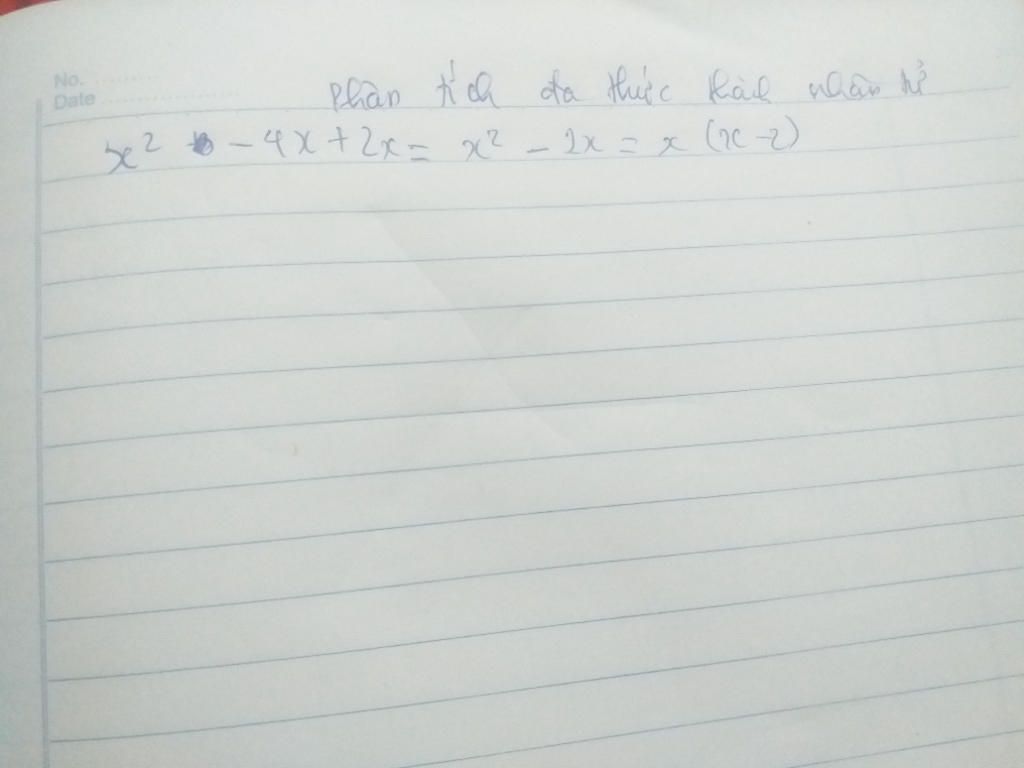 No. ..........
Date ....................
Phân tích đa thức thành nhân tử
x² - 4x + 2x = x² - 2x = x (x - 2)